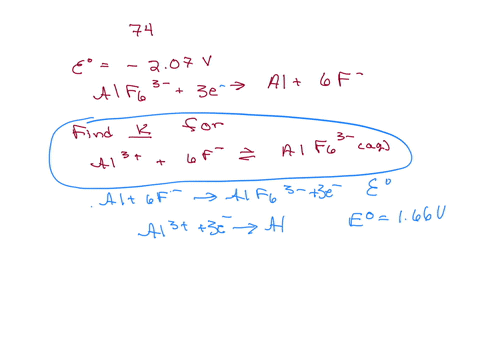 74
ℰ° = - 2.07 V
AlF₆³⁻ + 3e⁻ → Al + 6F⁻
Find K for
Al³⁺ + 6F⁻ ⇌ AlF₆³⁻(aq)
Al + 6F⁻ → AlF₆³⁻ + 3e⁻ ℰ°
Al³⁺ + 3e⁻ → Al E° = 1.66V